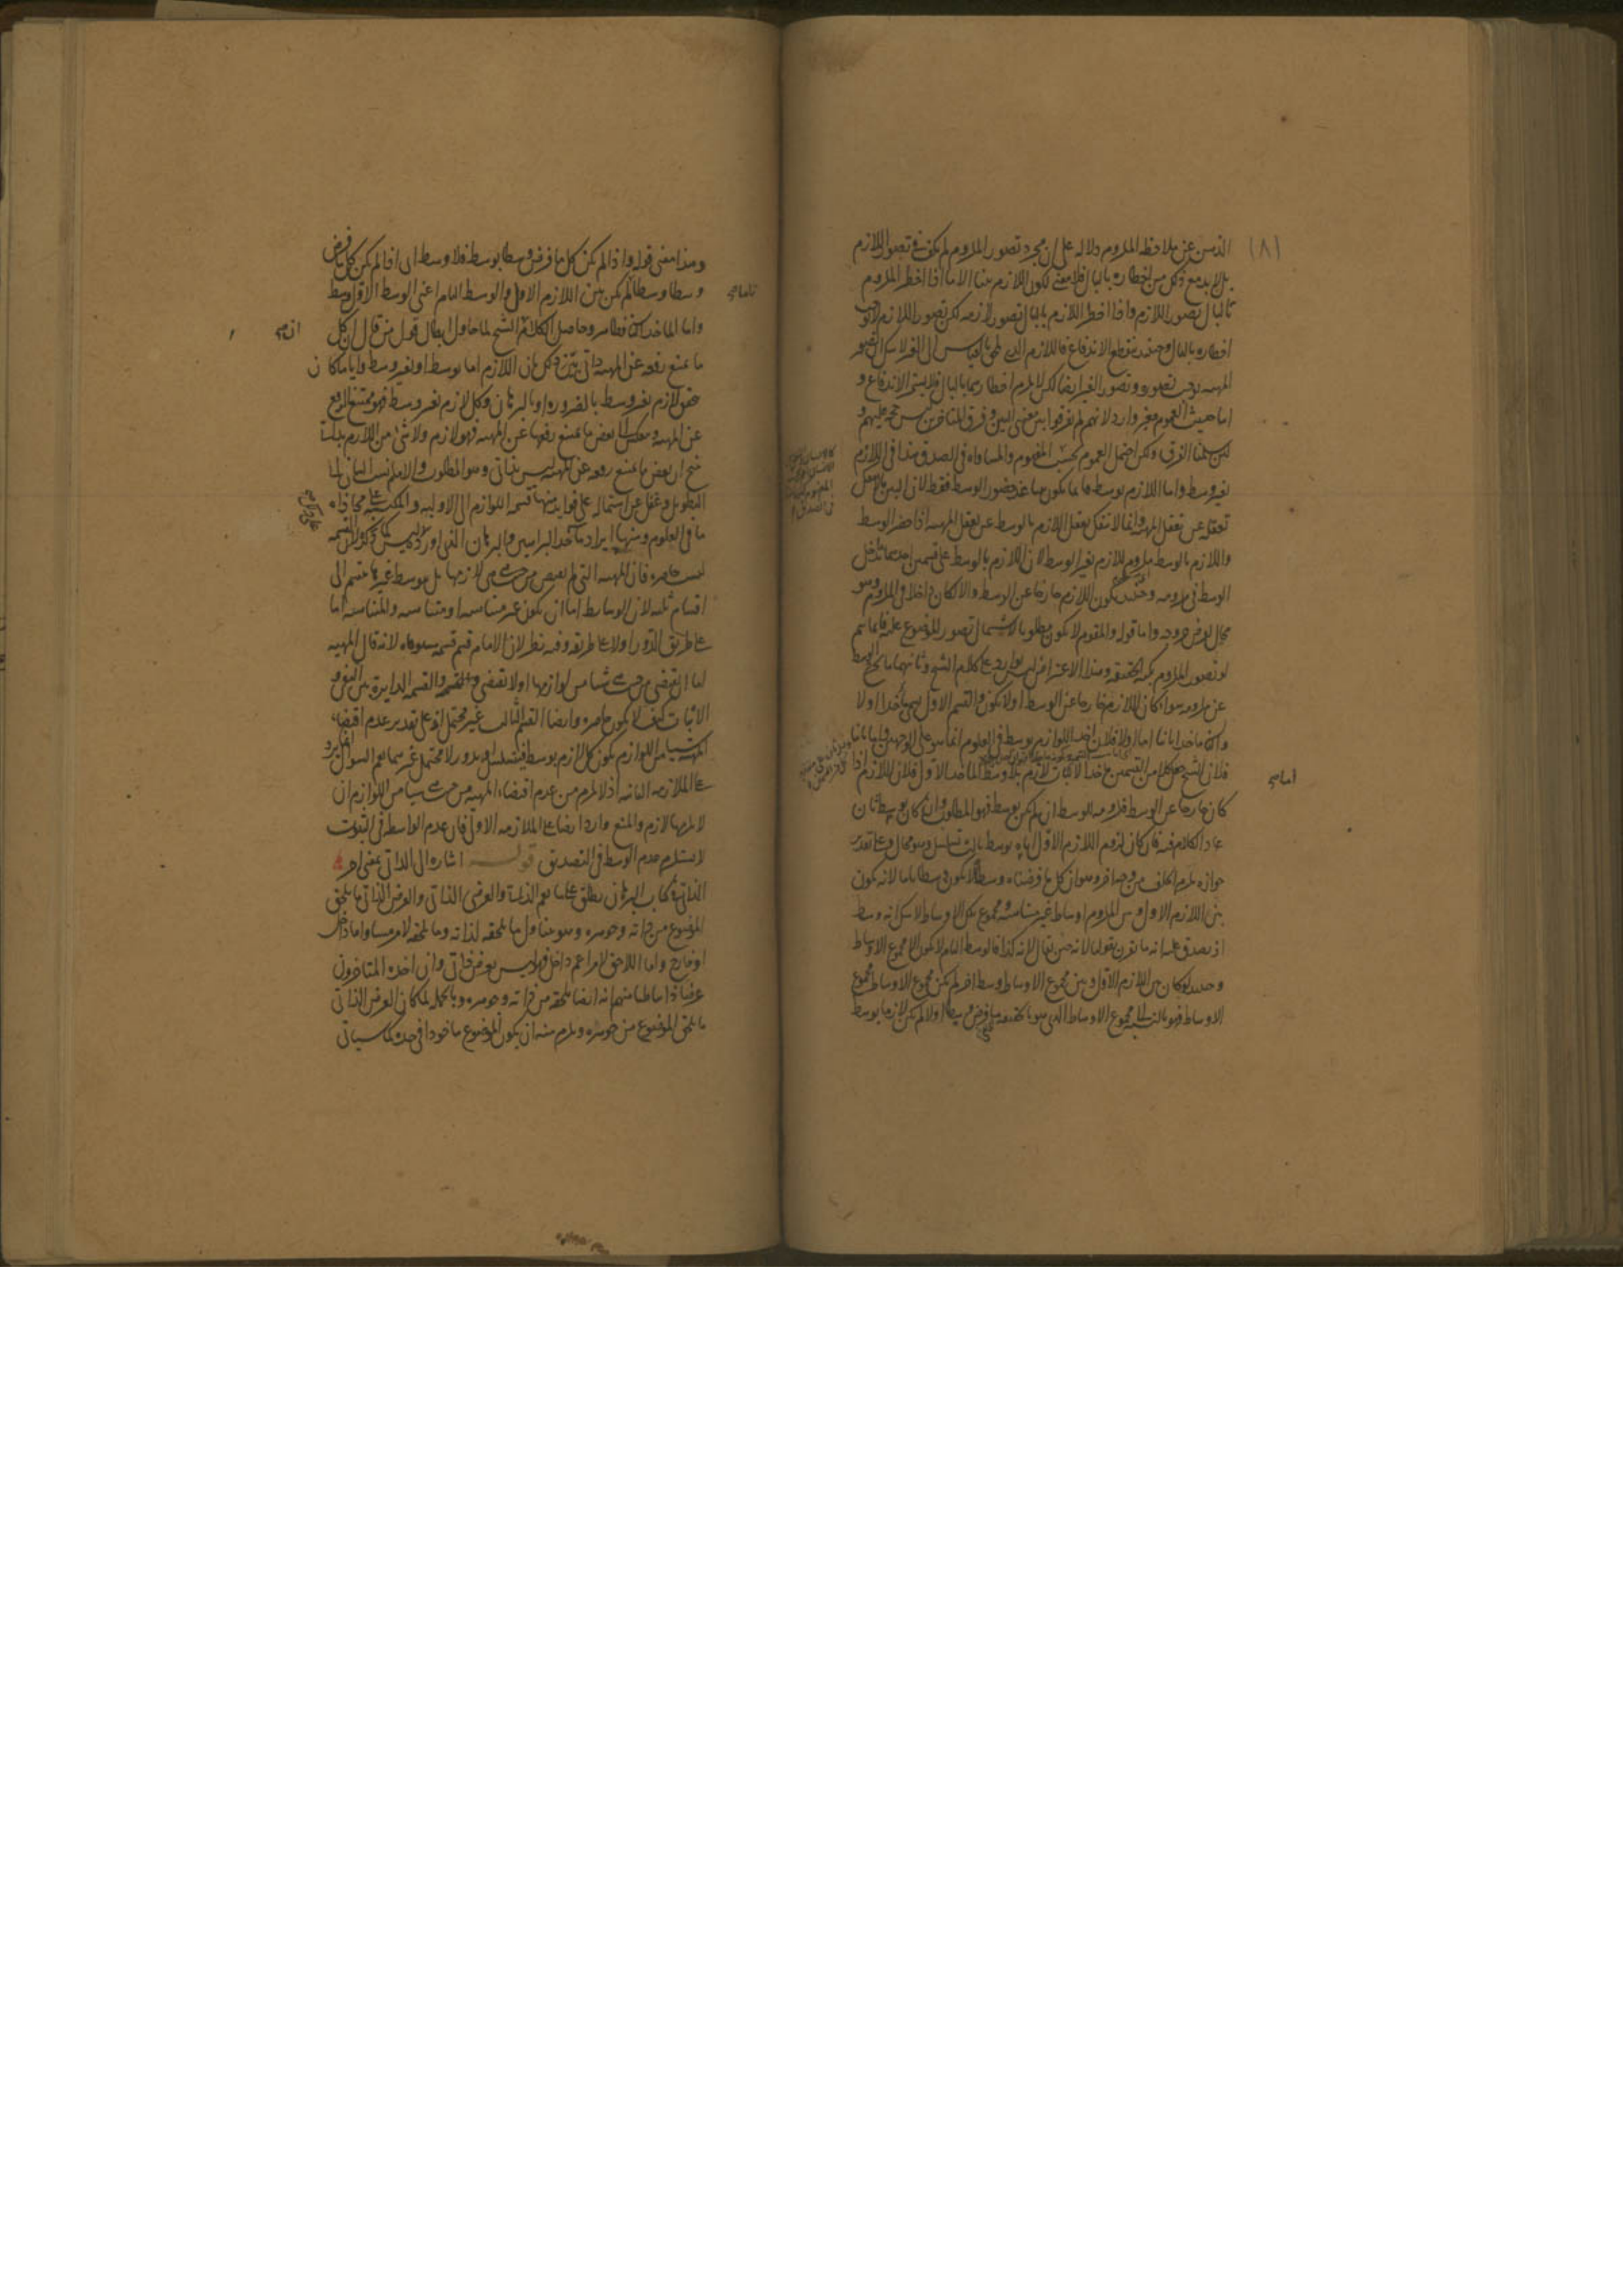 الذهن عن ملاحظه الملزوم دلاله على ان مجرد تصور الملزوم لم يكف فى تصور اللازم
بل لا بد مع ذلك من اخطاره بالبال فلا معنى لكون اللازم بينا الا ما اذا اخطر الملزوم
بالبال تصور اللازم واذا اخطر اللازم بالبال تصور لازمه لكن تصور اللازم لا يوجب
اخطاره بالبال وحينئذ ينقطع الاندفاع فاللازم الذى
المهيه يوجب تصوره وتصور الغير ايضا لكن لا يلزم اخطارهما بالبال فلا يستمر الاندفاع و
اما حيث العموم فغير وارد لانهم لم يفرقوا بين معنى البين وفرق المتاخرين ليس حجه عليهم و
لئن سلمنا الفرق ولكن احتمل العموم بحسب المفهوم والمساواه فى الصدق هذا فى اللازم
بغير وسط واما اللازم بوسط فانما يكون بينا عند حضور الوسط فقط لان البين
تعقله عن تعقل المهيه وانما لا ينفك تعقل اللازم بالوسط عن تعقل المهيه اذا حضر الوسط
واللازم بالوسط ملزوم للازم بغير الوسط لان اللازم بالوسط على قسمين احدهما يدخل
الوسط فى ملزومه وحينئذ يكون اللازم خارجا عن الوسط والا لكان داخلا فى الملزوم وهو
محال لفرض خروجه واما قوله والمقوم لا يكون مطلوبا لاشتمال تصور الموضوع عليه فانما يتم
لو تصور الملزوم بكنه الحقيقه وهذا الاعتراض ليس بوارد على كلام الشيخ وثانيهما ما يخرج الوسط
عن ملزومه سواء كان اللازم خارجا عن الوسط او لا يكون والقسم الاول يسمى مأخذا اولا
والثانى مأخذا ثانيا اما اولا فلان اخذ اللوازم بوسط فى العلوم انما هو على الوجهين واما ثانيا
فلان الشيخ جعل كلا من القسمين مأخذا لاثبات لازم بلا وسط اما المأخذ الاول فلان اللازم اذا
كان خارجا عن الوسط فلزومه للوسط ان لم يكن بوسط فهو المطلوب وان كان بوسط ثان
عاد الكلام فيه فان كان لزوم اللازم الاول اياه بوسط ثالث تسلسل وهو محال وعلى تقدير
جوازه يلزم الخلف من وجه اخر وهو ان كل ما فرضناه وسطا لا يكون وسطا تاما لانه يكون
بين اللازم الاول وبين الملزوم اوساط غير متناهيه ومجموع تلك الاوساط لا شك انه وسط
اذ يصدق عليه انه ما يقرن بقولنا لانه حين يقال لانه كذا فالوسط التام لا يكون الا مجموع الاوساط
وحينئذ لو كان بين اللازم الاول وبين مجموع الاوساط وسط اخر لم يكن مجموع الاوساط مجموع
الاوساط فهو بالنسبه الى مجموع الاوساط الذى هو بالحقيقه ما فرض وسطا اولا لم يكن لازما بوسط
اما صح
وهذا معنى قوله واذا لم يكن كل ما فرض وسطا بوسط فلا وسط اى اذا لم يكن كل ما فرض
وسطا وسطا لم يكن بين اللازم الاول والوسط التام اعنى الوسط الاول وسط
تاما صح
واما المأخذ الثانى فظاهر وحاصل الكلام ان الشيخ لما حاول ابطال قول من قال ان كل
ما يمتنع رفعه عن المهيه ذاتى بين ذلك بان اللازم اما بوسط او بغير وسط وايا ما كان
تحقق لازم بغير وسط بالضروره او بالبرهان وكل لازم بغير وسط فهو ممتنع الرفع
عن المهيه وينعكس الى بعض ما يمتنع رفعها عن المهيه فهو لازم ولا شئ من اللازم بذاتى
ينتج ان بعض ما يمتنع رفعه عن المهيه ليس بذاتى وهو المطلوب والامام نسب البيان الى
التطويل وغفل عن اشتماله على فوايد منها قسمه اللوازم الى الاوليه والمكتسبه على محاذاه
ما فى العلوم ومنها ايراد مأخذ البراهين والبرهان الذى اورده ليس كما ذكره لان القسمه
ليست حاصره فان المهيه التى لم يقتض من حيث هى لازمها بل بوسط غيرها ينقسم الى
اقسام ثلثه لان الوسايط اما ان يكون غير متناهيه او متناهيه والمتناهيه اما
على طريق الدور او لا على طريقه وفيه نظر لان الامام قسم قسمه مستوفاه لانه قال المهيه
اما ان تقتضى من حيث هى شيئا من لوازمها او لا تقتضى وهذه القسمه القسمه الدايره بين النفى و
الاثبات كيف لا يكون حاصره وايضا القسم الثالث غير محتمل لانه على تقدير عدم اقتضاء
المهيه شيئا من اللوازم يكون كل لازم بوسط فيتسلسل او يدور لا محتمل غيرهما نعم السوال انما يرد
على الملازمه الثانيه اذ لا يلزم من عدم اقتضاء المهيه من حيث هى شيئا من اللوازم ان
لا يلزمها لازم والمنع وارد ايضا على الملازمه الاولى فان عدم الواسطه فى الثبوت
لا يستلزم عدم الوسط فى التصديق قوله اشاره الى الذاتى بمعنى اخر
الذاتى فى كتاب البرهان يطلق على ما يعم الذاتى والعرض الذاتى والعرض الذاتى ما يلحق
الموضوع من ذاته وجوهره وهو يتناول ما يلحقه لذاته وما يلحقه لامر مساو اما داخل
او خارج واما اللاحق لامر اعم داخل فهو ليس بعرض ذاتى وان اخذه المتاخرون
عرضا ذاتيا ظنا منهم انه ايضا يلحقه من ذاته وجوهره وبالجمله لما كان العرض الذاتى
ما يلحق الموضوع من جوهره ويلزم منه ان يكون الموضوع ماخوذا فى حده كما سياتى